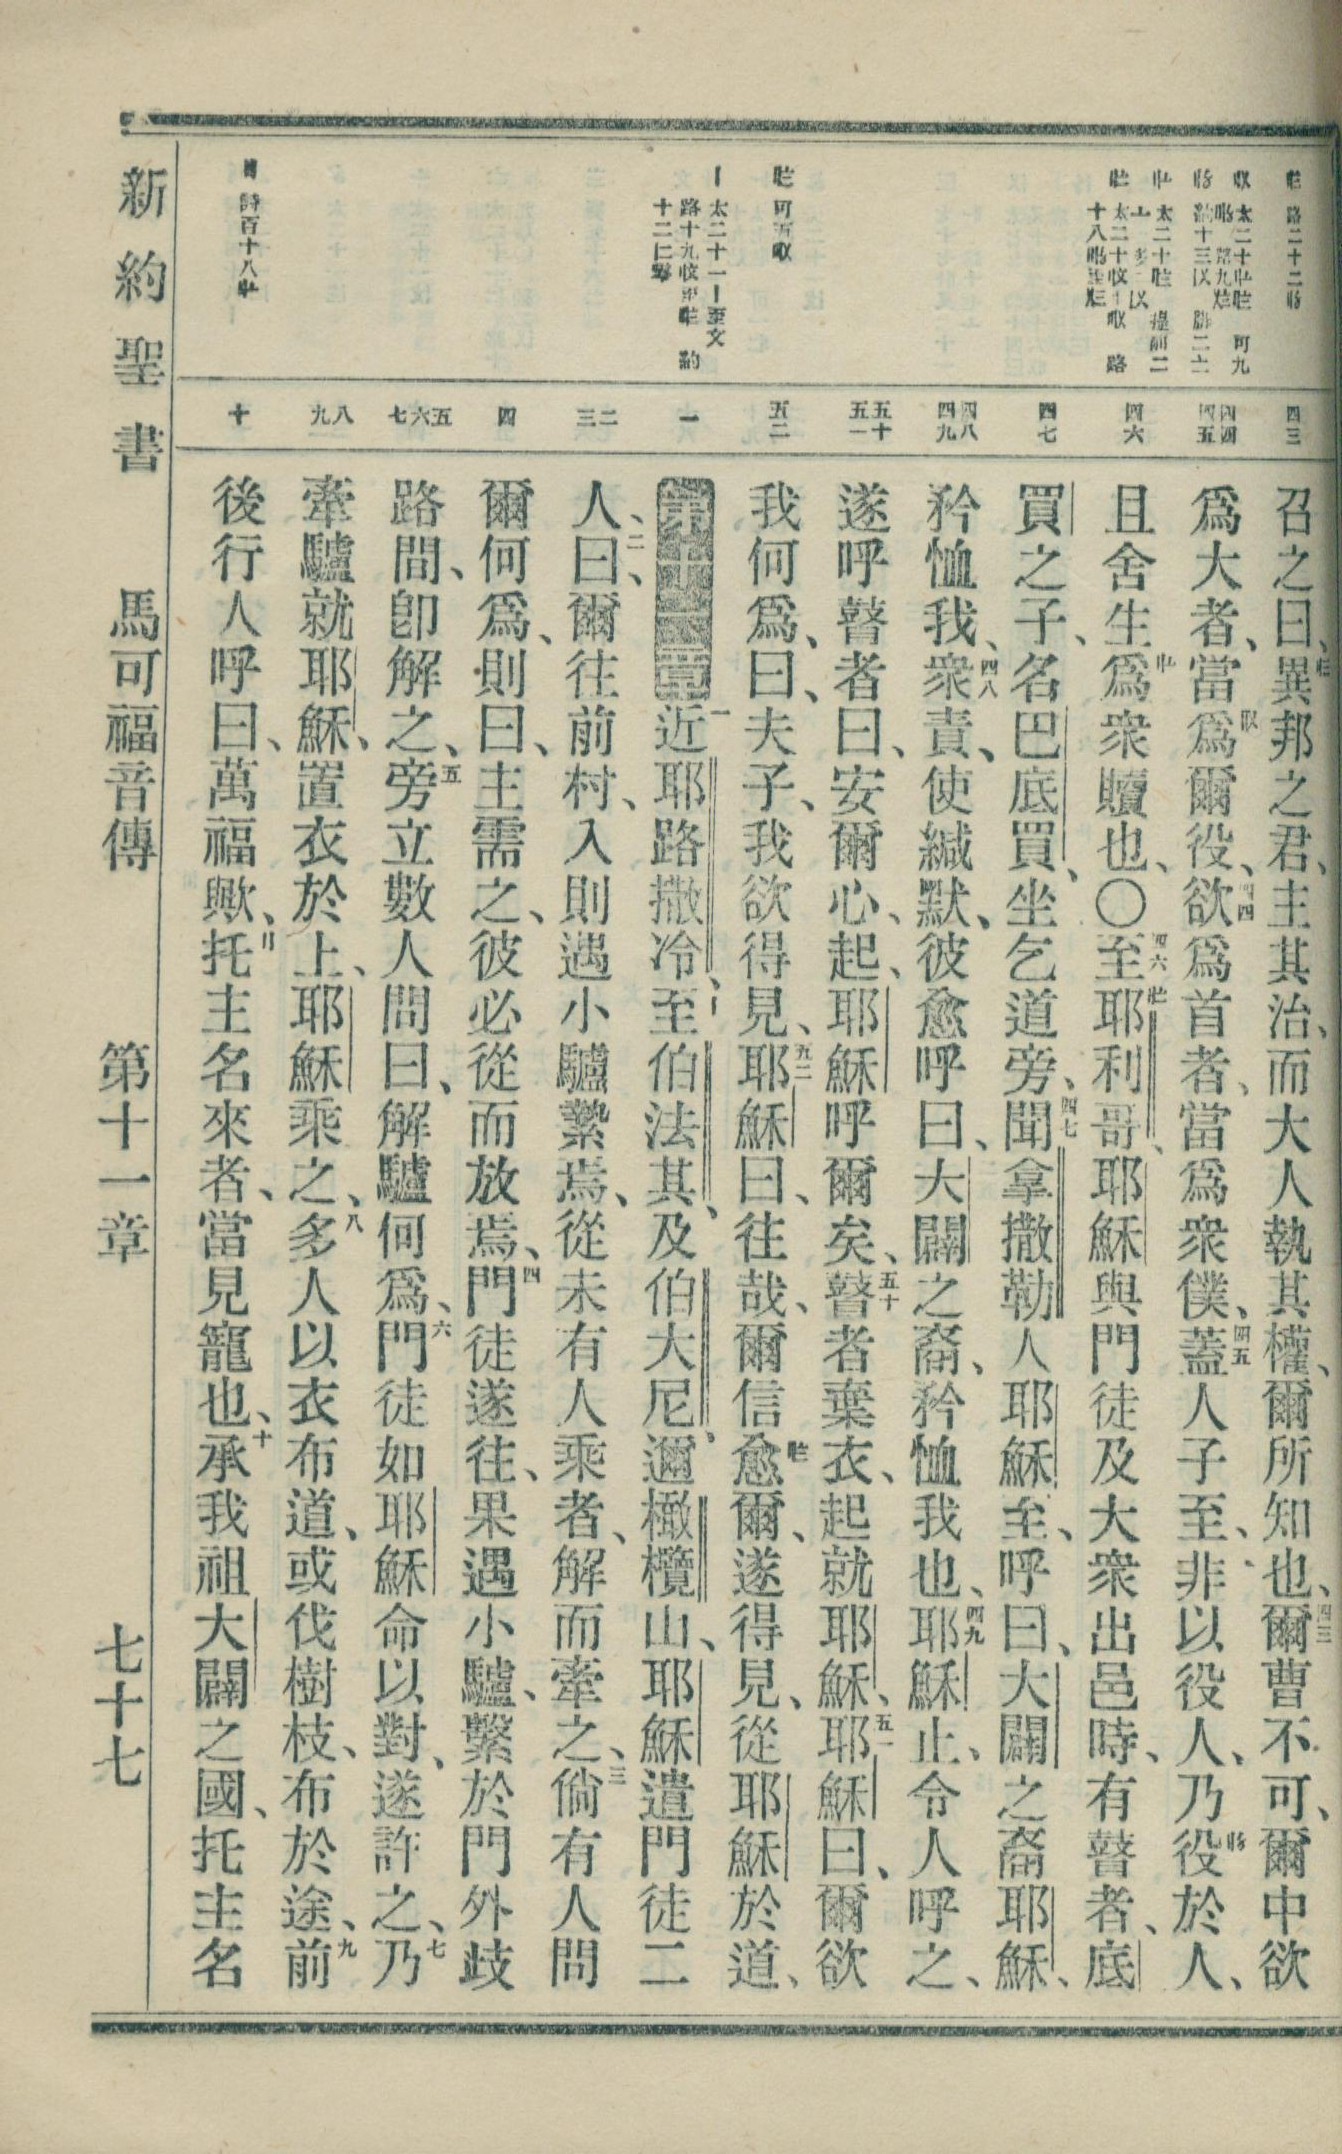 召之曰、異邦之君、主其治、而大人執其權、爾所知也、四三爾曹不可、爾中欲
爲大者、當爲爾役、四四欲爲首者、當爲衆僕、四五蓋人子至、非以役人、乃役於人、
且舍生爲衆贖也、〇四六至耶利哥、耶穌與門徒及大衆出邑時、有瞽者、底
買之子、名巴底買、坐乞道旁、四七聞拿撒勒人耶穌至、呼曰、大闢之裔耶穌、
矜恤我、四八衆責、使緘默、彼愈呼曰、大闢之裔、矜恤我也、四九耶穌止、令人呼之、
遂呼瞽者曰、安爾心、起、耶穌呼爾矣、五十瞽者棄衣、起就耶穌、五一耶穌曰、爾欲
我何爲、曰、夫子、我欲得見、五二耶穌曰、往哉、爾信愈爾、遂得見、從耶穌於道、
第十一章 一近耶路撒冷、至伯法其、及伯大尼、邇橄欖山、耶穌遣門徒二
人、二曰、爾往前村、入則遇小驢縶焉、從未有人乘者、解而牽之、三倘有人問
爾何爲、則曰、主需之、彼必從而放焉、四門徒遂往、果遇小驢、繫於門外歧
路間、卽解之、五旁立數人問曰、解驢何爲、六門徒如耶穌命以對、遂許之、七乃
牽驢就耶穌、置衣於上、耶穌乘之、八多人以衣布道、或伐樹枝、布於途、九前
後行人呼曰、萬福歟、托主名來者、當見寵也、十承我祖大闢之國、托主名
四三
四四 四五
四六
四七
四八 四九
五十 五一
五二
一
二 三
四
五 六 七
八 九
十
新約聖書 馬可福音傳 第十一章 七十七